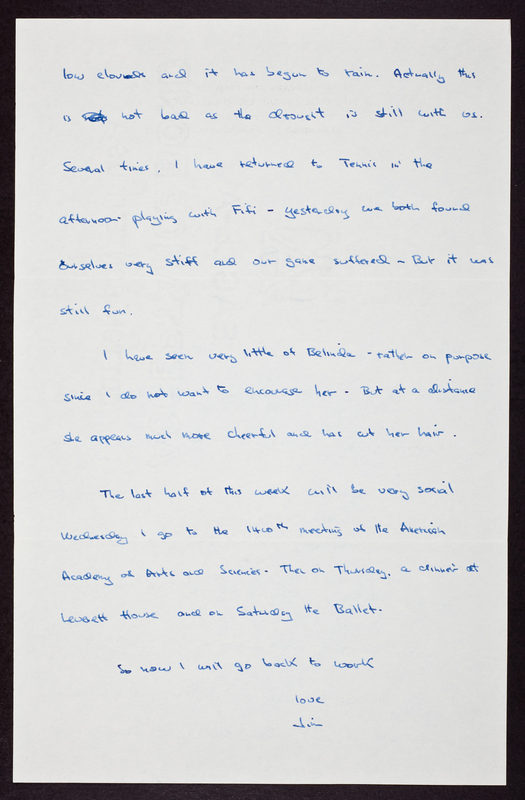 low clouds and it has begun to rain. Actually this
is not bad as the drought is still with us.
Several times, I have returned to Tennis in the
afternoon playing with Fifi - yesterday we both found
ourselves very stiff and our game suffered - But it was
still fun.
I have seen very little of Belinda - rather on purpose
since I do not want to encourage her - But at a distance
she appears much more cheerful and has cut her hair.
The last half of this week will be very social
Wednesday I go to the 1410th meeting of the American
Academy of Arts and Sciences - Then on Thursday, a dinner at
Leverett House and on Saturday the Ballet.
So now I will go back to work
love
Jim